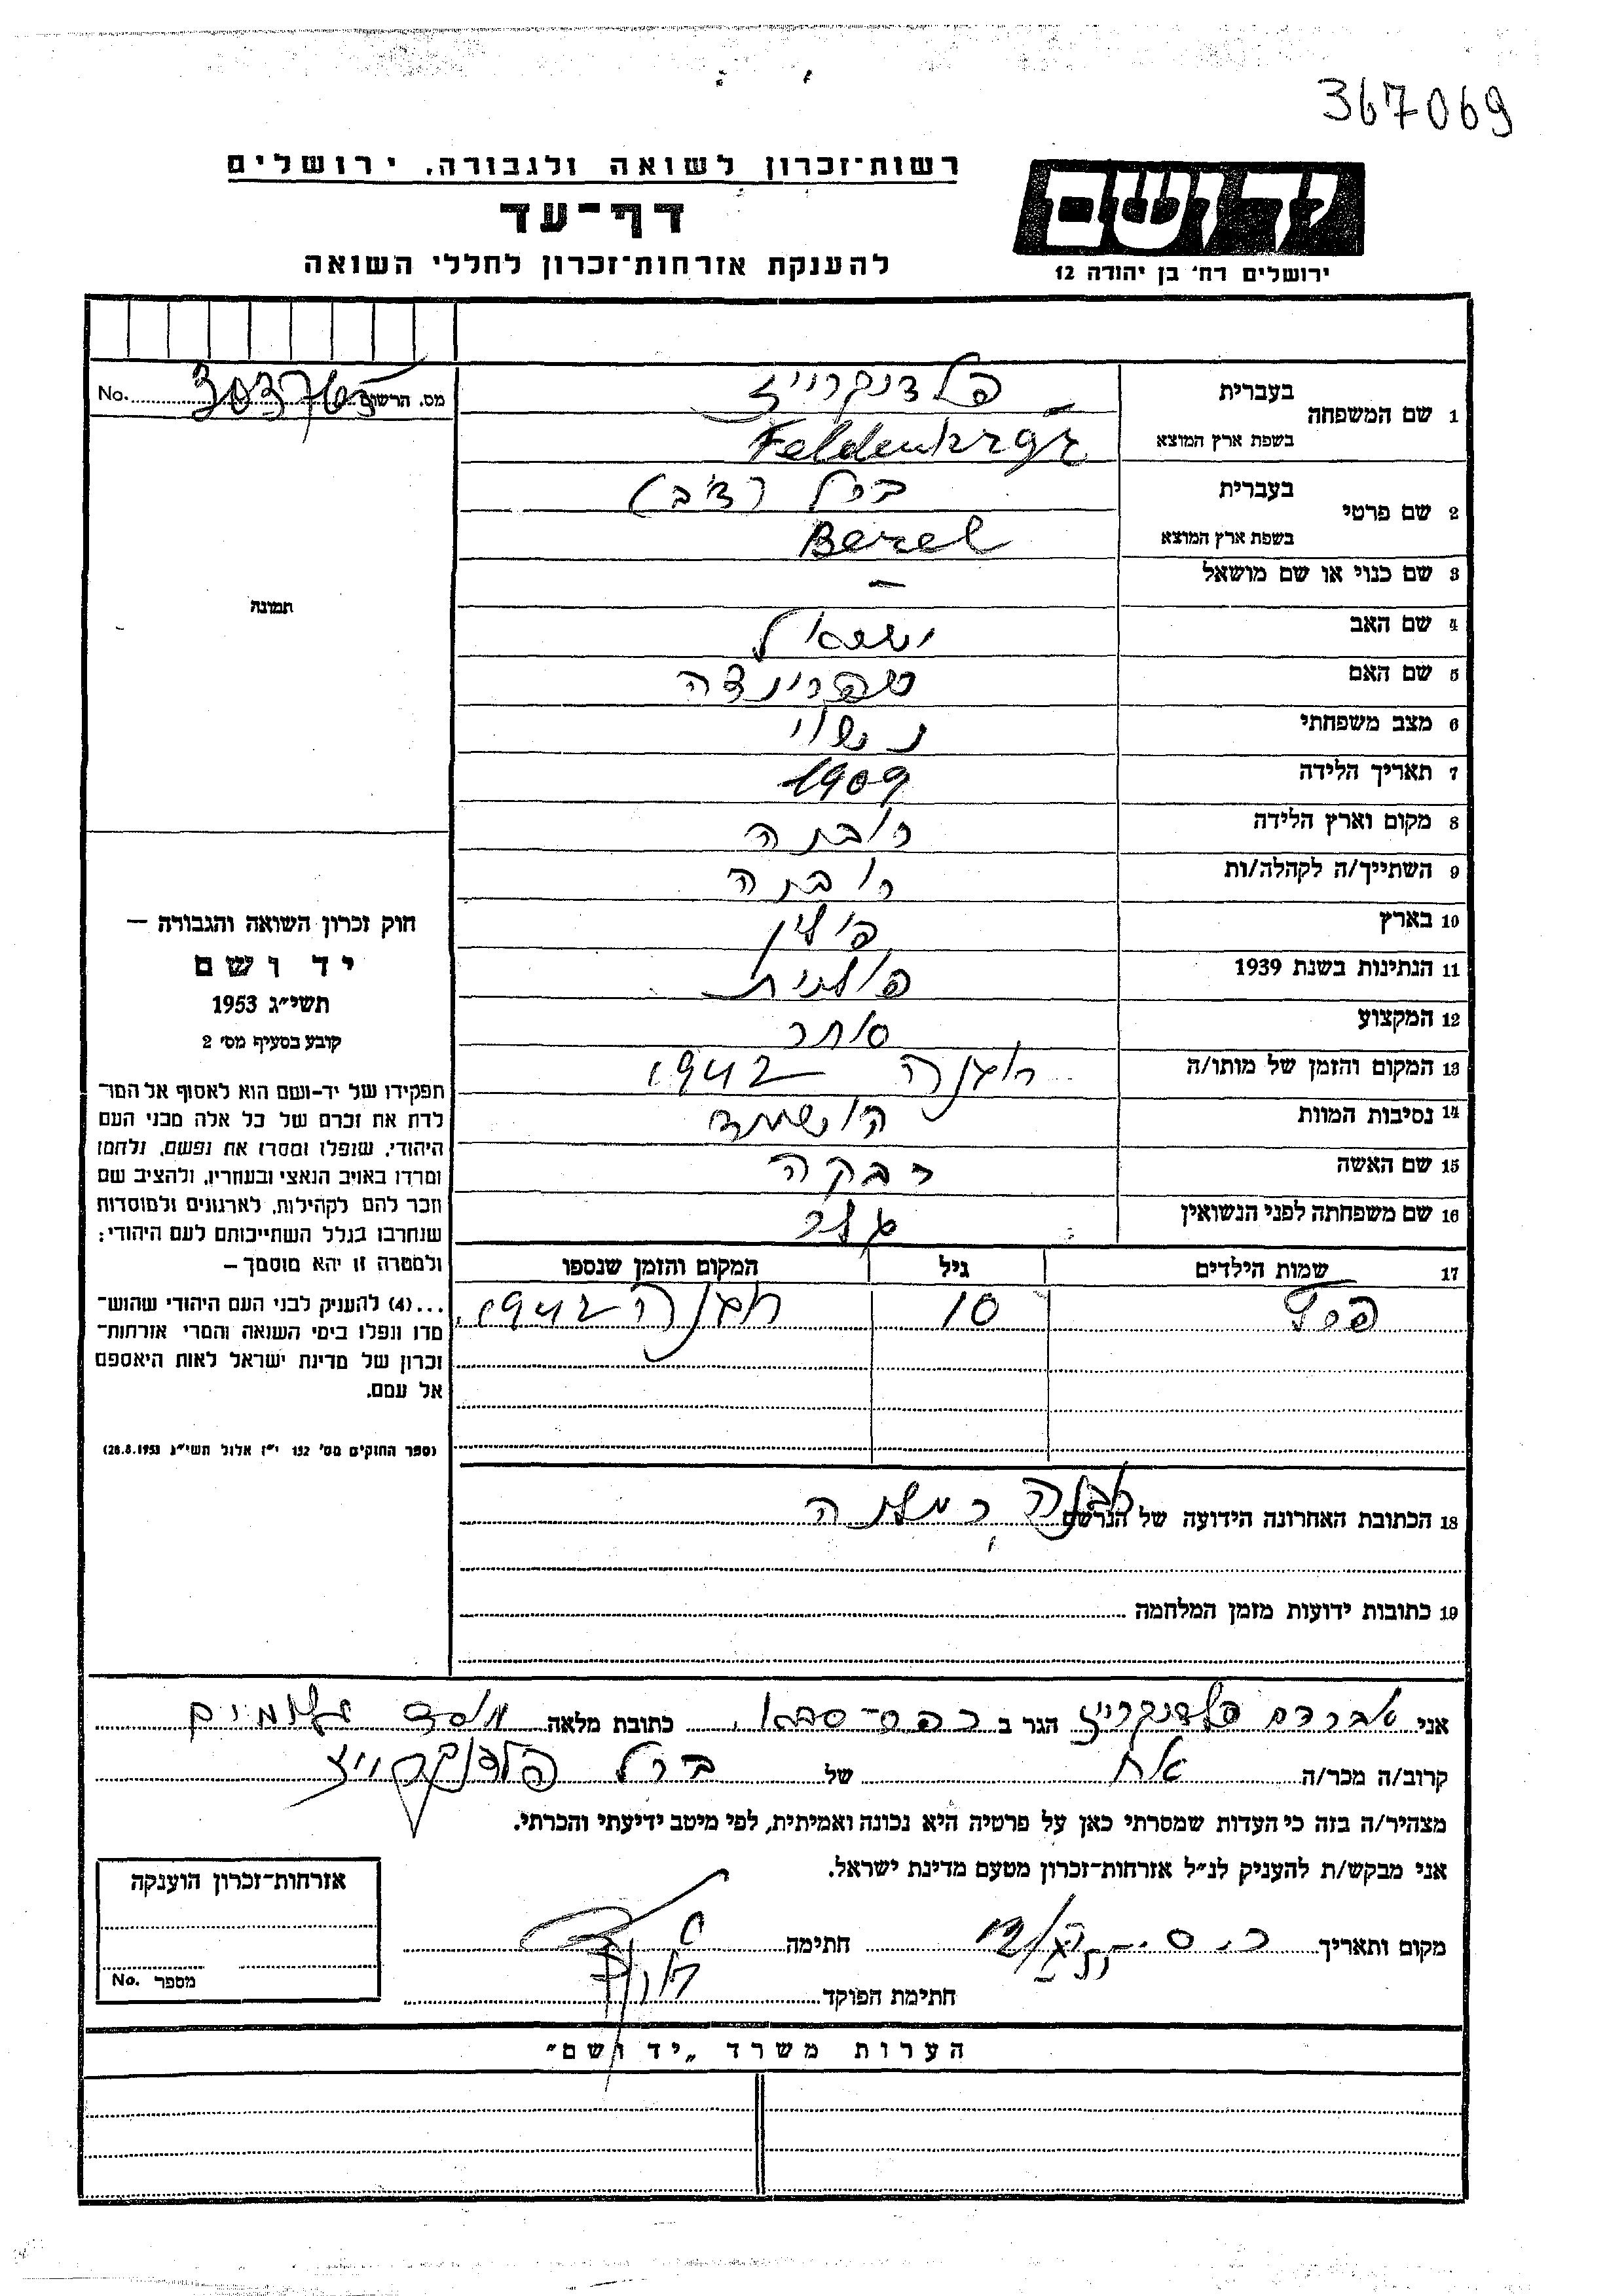 367069
רשות־זכרון לשואה ולגבורה, ירושלים
דף־עד
להענקת אזרחות־זכרון לחללי השואה
יד ושם
ירושלים רח׳ בן יהודה 12
No. 303765 מס. הרשום
1 שם המשפחה
בעברית פלדנקרייז
בשפת ארץ המוצא
2 שם פרטי
בעברית ברל (דב)
בשפת ארץ המוצא Berel
3 שם כנוי או שם מושאל –
4 שם האב ישראל
5 שם האם שפרינצה
6 מצב משפחתי נשוי
7 תאריך הלידה 1909
8 מקום וארץ הלידה
9 השתייך/ה לקהלה/ות
10 בארץ פולין
11 הנתינות בשנת 1939 פולנית
12 המקצוע סוחר
13 המקום והזמן של מותו/ה 1942
14 נסיבות המוות הושמד
15 שם האשה רבקה
16 שם משפחתה לפני הנשואין
17 שמות הילדים גיל המקום והזמן שנספו
10 1942
18 הכתובת האחרונה הידועה של הנרשם
19 כתובות ידועות מזמן המלחמה
תמונה
חוק זכרון השואה והגבורה –
יד ושם
תשי״ג 1953
קובע בסעיף מס׳ 2
תפקידו של יד-ושם הוא לאסוף אל המו־
לדת את זכרם של כל אלה מבני העם
היהודי, שנפלו ומסרו את נפשם, נלחמו
ומרדו באויב הנאצי ובעוזריו, ולהציב שם
וזכר להם לקהילות, לארגונים ולמוסדות
שנחרבו בגלל השתייכותם לעם היהודי;
ולמטרה זו יהא מוסמך –
...(4) להעניק לבני העם היהודי שהוש־
מדו ונפלו בימי השואה והמרי אזרחות־
זכרון של מדינת ישראל לאות היאספם
אל עמם.
(ספר החוקים מס׳ 132 י״ז אלול תשי״ג 28.8.1953)
אני אברהם פלדנקרייז הגר ב כפר-סבא, כתובת מלאה מוסד עלומים
קרוב/ה מכר/ה אח של ברל פלדנקרייז
מצהיר/ה בזה כי העדות שמסרתי כאן על פרטיה היא נכונה ואמיתית, לפי מיטב ידיעתי והכרתי.
אני מבקש/ת להעניק לנ״ל אזרחות־זכרון מטעם מדינת ישראל.
מקום ותאריך כ. ס. חתימה
חתימת הפוקד
אזרחות־זכרון הוענקה
מספר No.
הערות משרד „יד ושם״